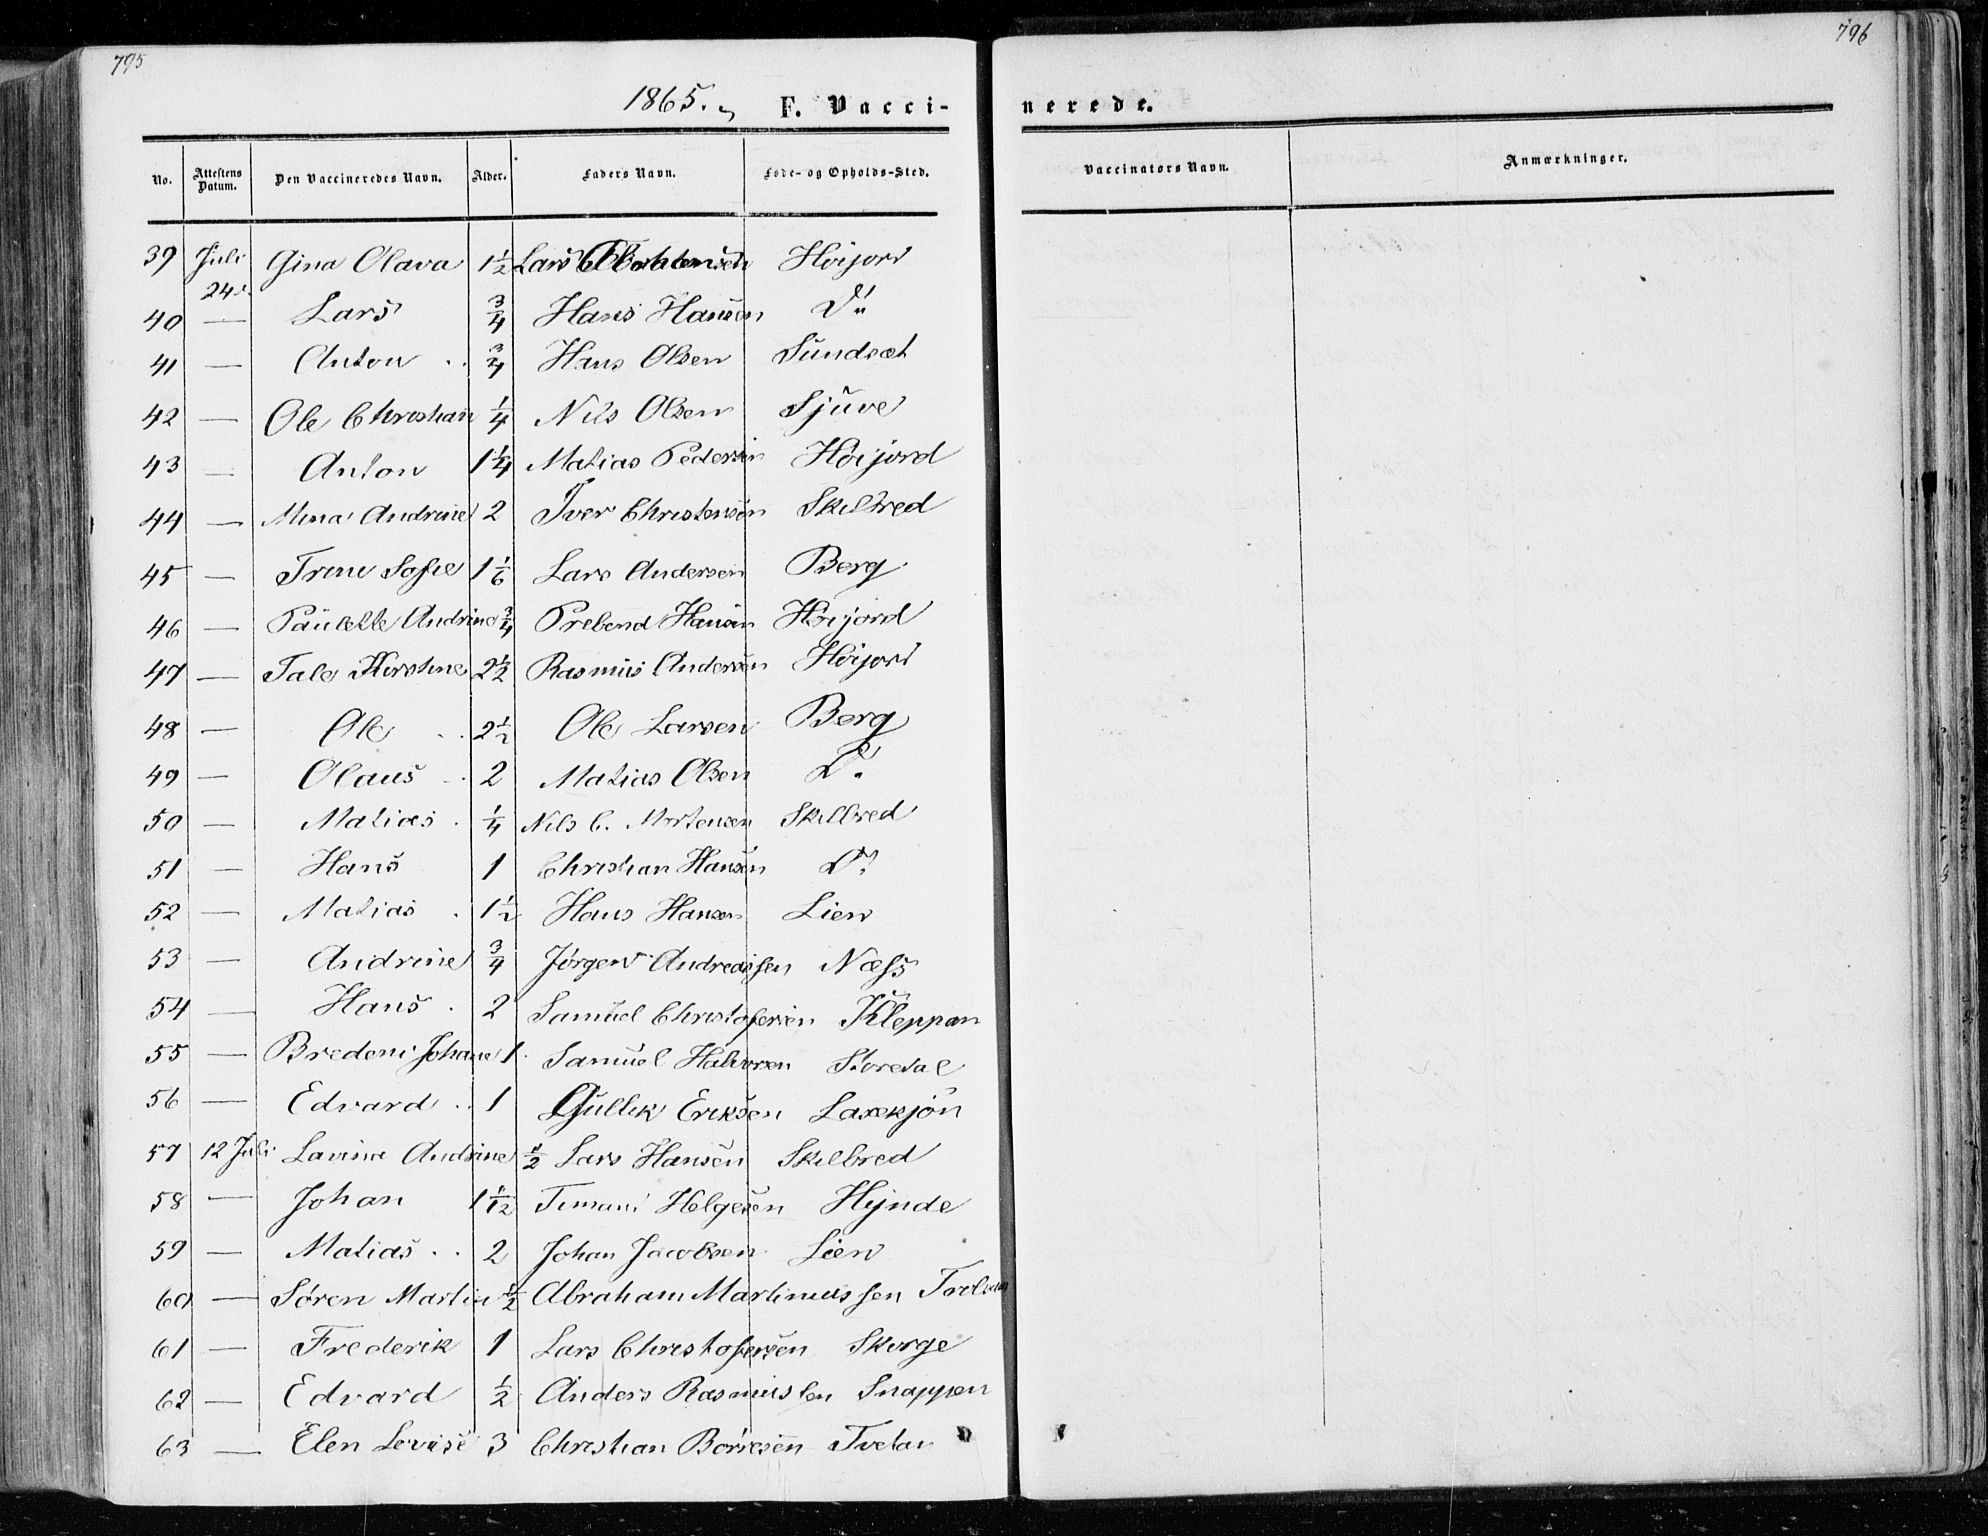 795
796
1865. F. Vacci-
nerede.
No. Attestens Datum. Den Vaccineredes Navn. Alder. Faders Navn. Føde- og Opholds-Sted.
Vaccinators Navn. Anmærkninger.
39 Juli 24de Gina Olava 1 1/2 Lars Høijord
40 — Lars 3/4 Hans Hansen Do
41 — Anton 3/4 Hans Olsen Sundset
42 — Ole Christian 1/4 Nils Olsen Sjuve
43 — Anton 1 1/4 Matias Pedersen Høijord
44 — Mina Andrine 2 Iver Christensen Skilbred
45 — Trine Sofie 1 1/6 Lars Andersen Berg
46 — Paulette Andrine 3/4 Prebend Hansen Høijord
47 — Tale Kirstine 2 1/2 Rasmus Andersen Høijord
48 — Ole 2 1/2 Ole Larsen Berg
49 — Olaus 2 Matias Olsen Do
50 — Matias 1/4 Nils C. Mortensen Skilbred
51 — Hans 1 Christian Hansen Do
52 — Matias 1 1/2 Hans Hansen Lien
53 — Andrine 3/4 Jørgen Andreassen Næss
54 — Hans 2 Samuel Christofersen Kleppan
55 — Bredeni Johane 1 Samuel Halvorsen Storedal
56 — Edvard 1 Gullik Eriksen Laxekjøn
57 12 Juli Lavina Andrine 1/2 Lars Hansen Skilbred
58 — Johan 1 1/12 Timani Helgesen Hynde
59 — Matias 2 Johan Jacobsen Lien
60 — Søren Martin 1/2 Abraham Martinussen
61 — Frederik 1 Lars Christofersen Skorge
62 — Edvard 1/2 Anders Rasmussen Snappen
63 — Elen Lovise 3 Christian Borresen Tvetan